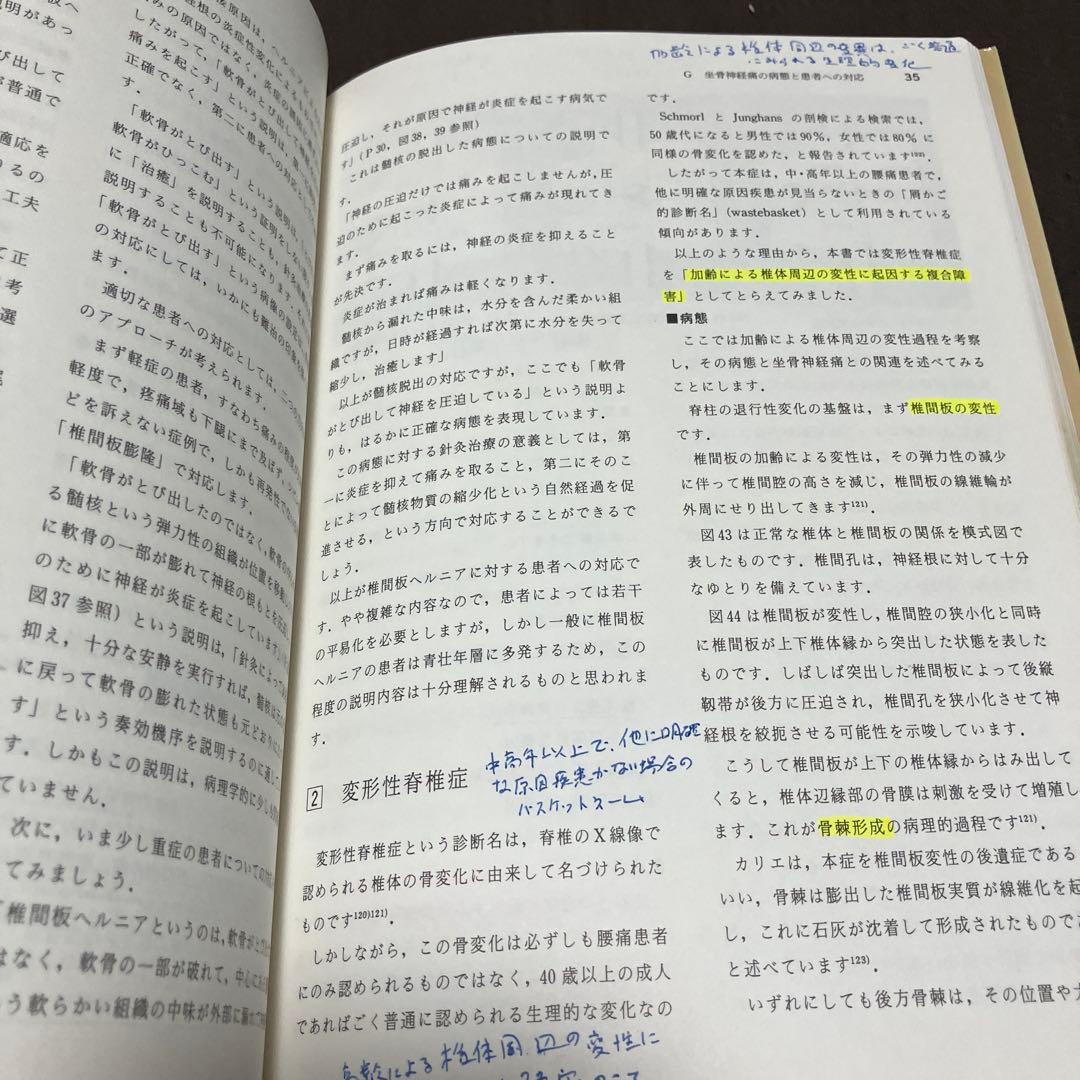 説明があっ
び出して
普通で
適応を
るの
工夫
て正
考
選
痛みを起こす」という説明は，第一
正確でなく，第二に患者への対応と
す．
「軟骨がとび出す」という説明は，
軟骨がひっこむ」という証明をし
に「治癒」を説明することも，針灸
説明することも不可能になります．
「軟骨がとび出す」という病像の
の対応にしては，いかにも難治の印象を
ます．
適切な患者への対応としては，二つの
のアプローチが考えられます．
まず軽症の患者，すなわち痛みの程度が
軽度で，疼痛域も下腿にまで及ばず，
どを訴えない症例で，しかも再発性で
「椎間板膨隆」で対応します．
「軟骨がとび出したのではなく，軟骨の
る髄核という弾力性の組織が位置を移動
に軟骨の一部が膨れて神経の根もとを圧迫し
のために神経が炎症を起こしています」
図37 参照）という説明は，「針灸によって
抑え，十分な安静を実行すれば，髄核は
に戻って軟骨の膨れた状態も元どおりに
す」という奏効機序を説明するのに適し
す．しかもこの説明は，病理学的に少しも
ていません．
次に，いま少し重症の患者についての
てみましょう．
「椎間板ヘルニアというのは，軟骨が
はなく，軟骨の一部が破れて，中心に
う軟らかい組織の中味が外部に漏れて
加齢による椎体周辺の変異は、ごく普通
にみられる生理的変化
G 坐骨神経痛の病態と患者への対応 35
圧迫し，それが原因で神経が炎症を起こす病気で
す」（P 30，図38，39 参照）
これは髄核の脱出した病態についての説明で
す．
「神経の圧迫だけでは痛みを起こしませんが，圧
迫のために起こった炎症によって痛みが現れてき
ます．
まず痛みを取るには，神経の炎症を抑えること
が先決です．
炎症が治まれば痛みは軽くなります．
髄核から漏れた中味は，水分を含んだ柔かい組
織ですが，日時が経過すれば次第に水分を失って
縮少し，治癒します」
以上が髄核脱出の対応ですが，ここでも「軟骨
がとび出して神経を圧迫している」という説明よ
りも，はるかに正確な病態を表現しています．
この病態に対する針灸治療の意義としては，第
一に炎症を抑えて痛みを取ること，第二にそのこ
とによって髄核物質の縮少化という自然経過を促
進させる，という方向で対応することができるで
しょう．
以上が椎間板ヘルニアに対する患者への対応で
す．やや複雑な内容なので，患者によっては若干
の平易化を必要としますが，しかし一般に椎間板
ヘルニアの患者は青壮年層に多発するため，この
程度の説明内容は十分理解されるものと思われま
す．
中高年以上で、他に明確
な原因疾患がない場合の
バスケットネーム
2 変形性脊椎症
変形性脊椎症という診断名は，脊椎のX線像で
認められる椎体の骨変化に由来して名づけられた
ものです120)121)．
しかしながら，この骨変化は必ずしも腰痛患者
にのみ認められるものではなく，40 歳以上の成人
であればごく普通に認められる生理的な変化なの
加齢による椎体周辺の変性に
です．
Schmorl と Junghans の剖検による検索では，
50 歳代になると男性では90%，女性では80% に
同様の骨変化を認めた，と報告されています122)．
したがって本症は，中・高年以上の腰痛患者で，
他に明確な原因疾患が見当らないときの「屑かご
的診断名」(wastebasket) として利用されている
傾向があります．
以上のような理由から，本書では変形性脊椎症
を「加齢による椎体周辺の変性に起因する複合障
害」としてとらえてみました．
■病態
ここでは加齢による椎体周辺の変性過程を考察
し，その病態と坐骨神経痛との関連を述べてみる
ことにします．
脊柱の退行性変化の基盤は，まず椎間板の変性
です．
椎間板の加齢による変性は，その弾力性の減少
に伴って椎間腔の高さを減じ，椎間板の線維輪が
外周にせり出してきます121)．
図43は正常な椎体と椎間板の関係を模式図で
表したものです．椎間孔は，神経根に対して十分
なゆとりを備えています．
図44 は椎間板が変性し，椎間腔の狭小化と同時
に椎間板が上下椎体縁から突出した状態を表した
ものです．しばしば突出した椎間板によって後縦
靱帯が後方に圧迫され，椎間孔を狭小化させて神
経根を絞扼させる可能性を示唆しています．
こうして椎間板が上下の椎体縁からはみ出して
くると，椎体辺縁部の骨膜は刺激を受けて増殖し
ます．これが骨棘形成の病理的過程です121)．
カリエは，本症を椎間板変性の後遺症である
いい，骨棘は膨出した椎間板実質が線維化を起
し，これに石灰が沈着して形成されたものである
と述べています123)．
いずれにしても後方骨棘は，その位置や